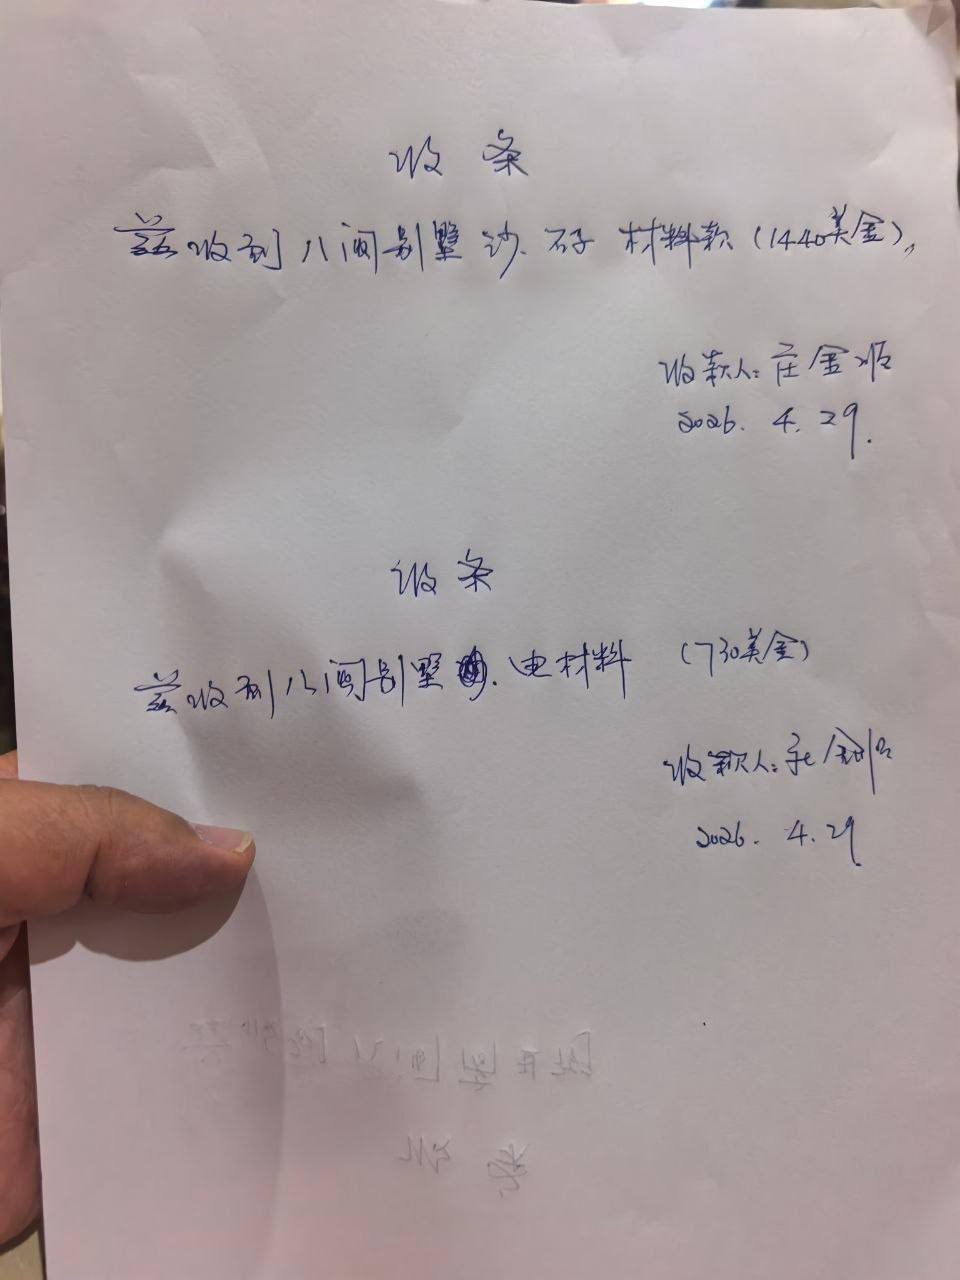 收条
兹收到八间别墅沙.石子 材料款(1440美金)。
收款人:庄金顺
2026.4.29.
收条
兹收到八间别墅.电材料 (730美金)
收款人:
2026.4.29